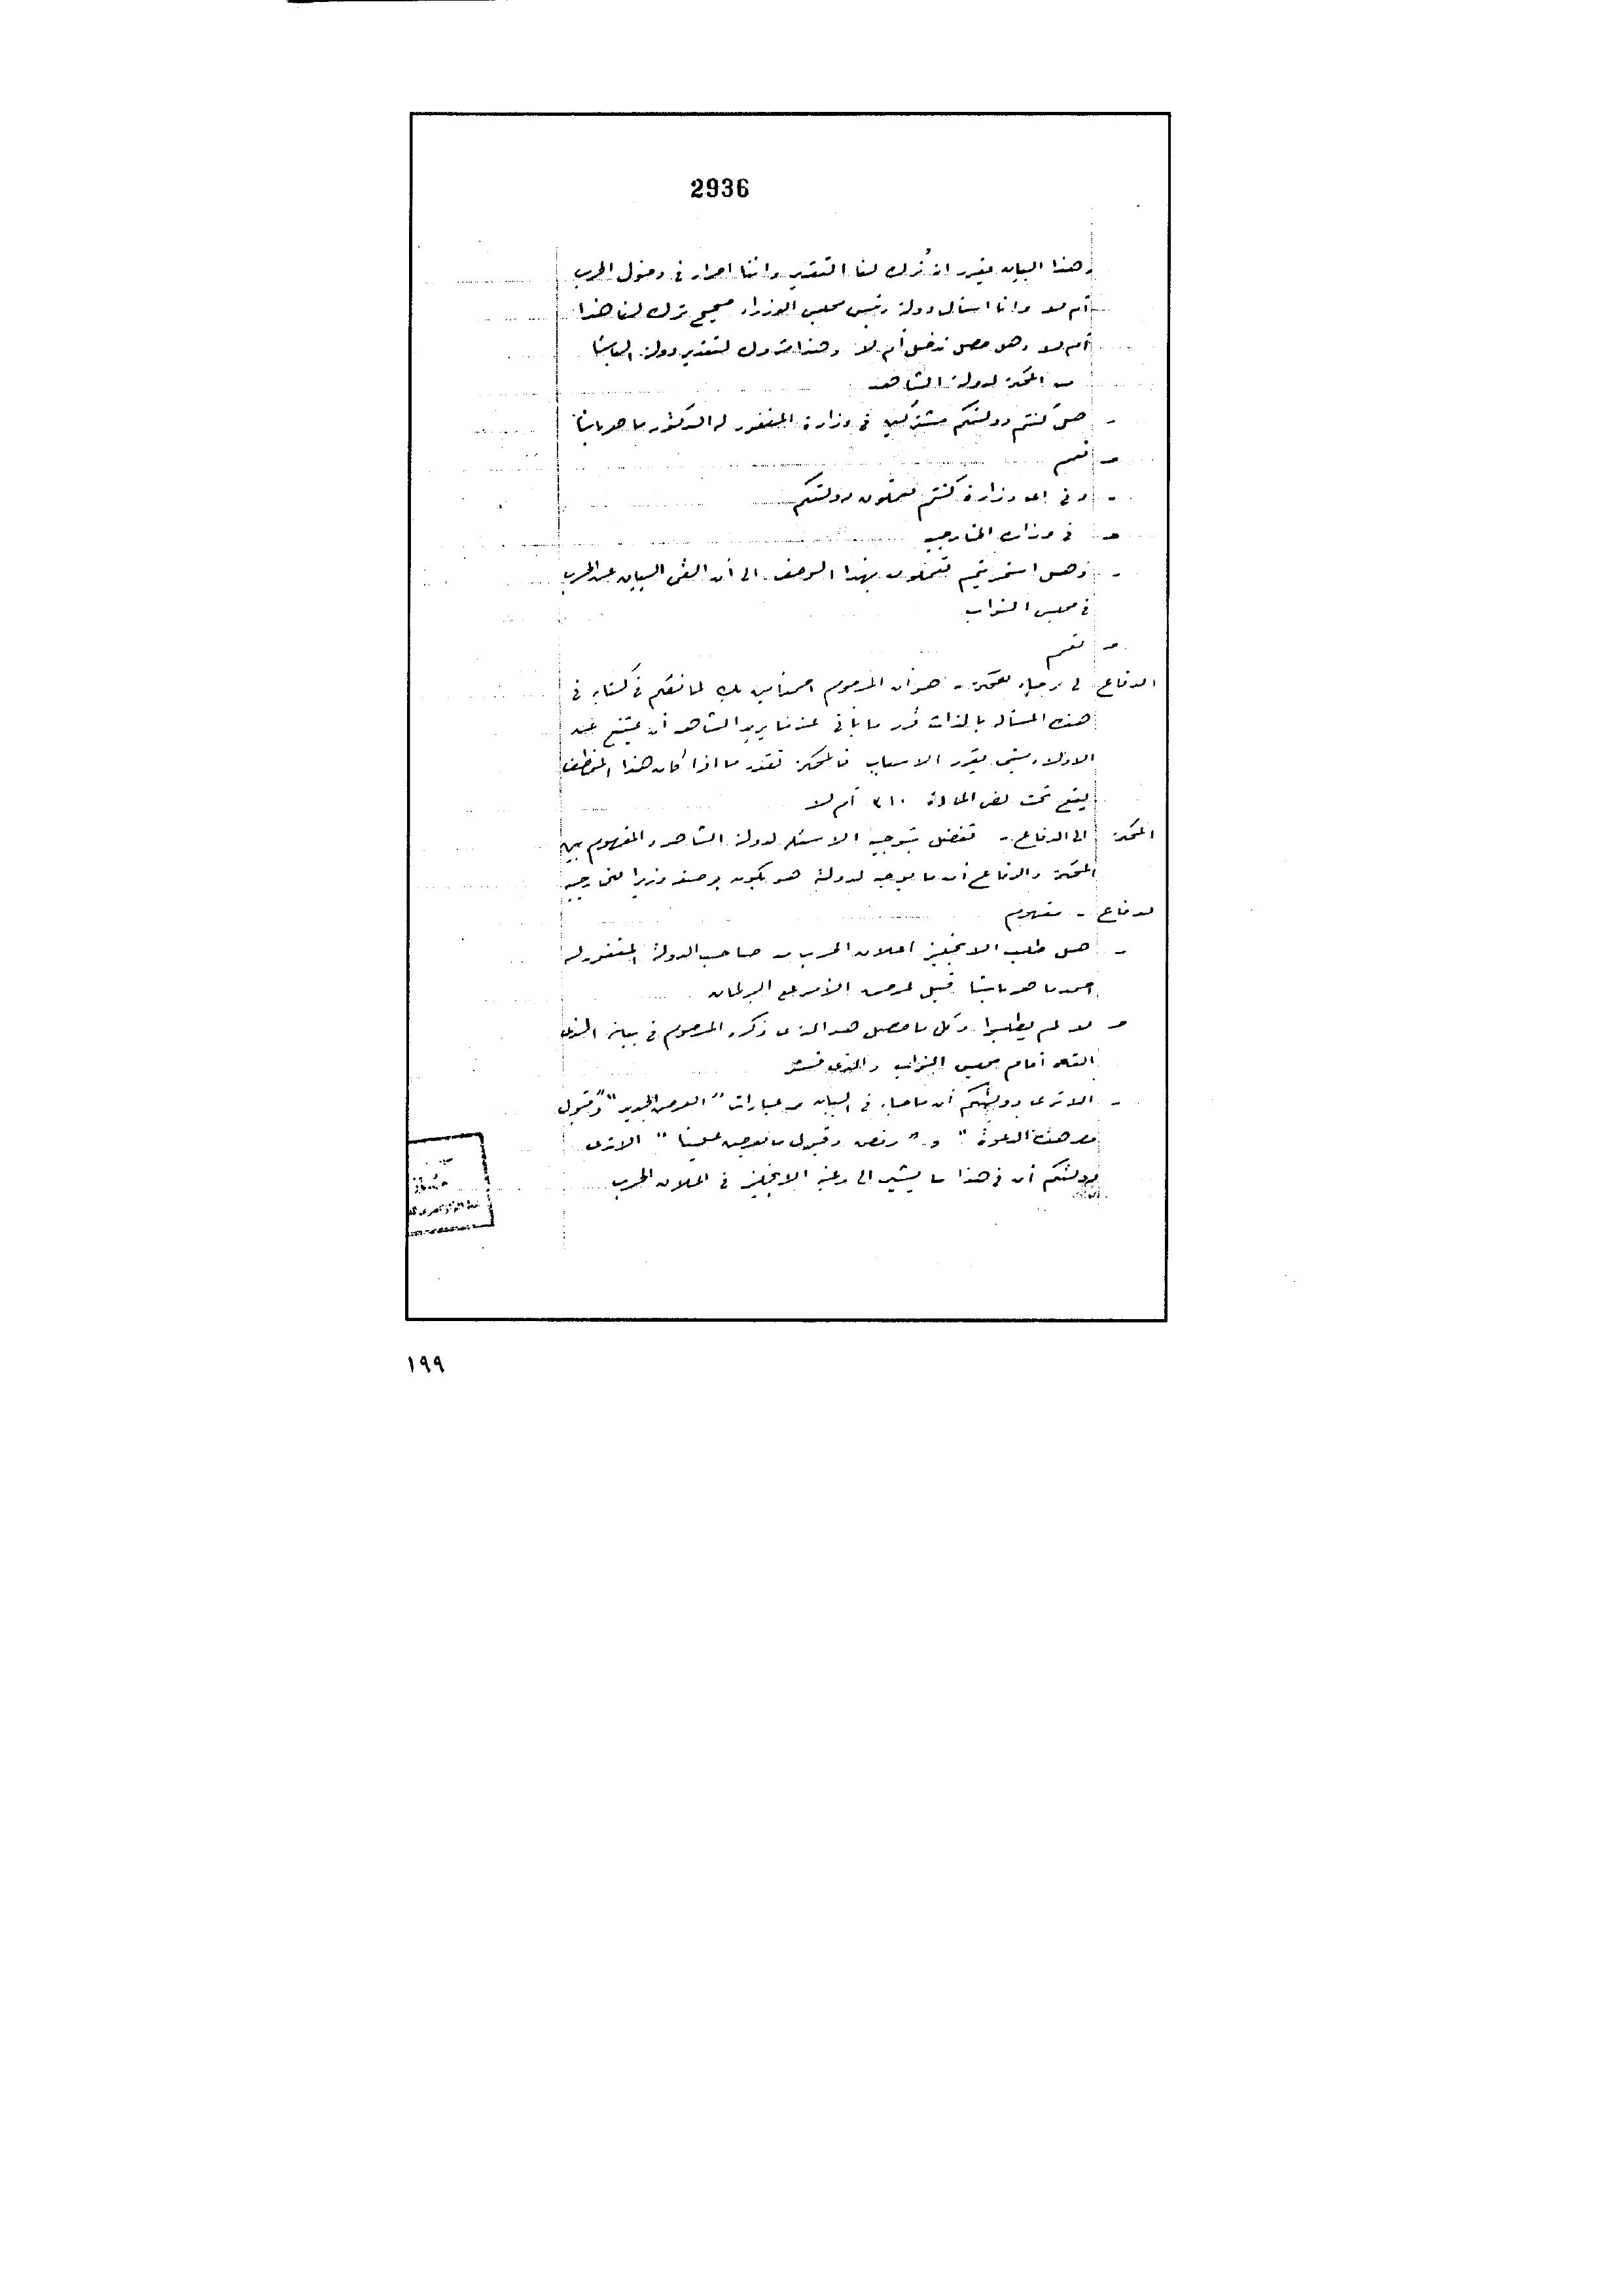 2936
وهذا البيان يقرر انه ترك لنا التقدير واننا احرار فى دخول الحرب
أم لا وانا اسأل دولة رئيس مجلس الوزراء صحيح ترك لنا هذا
أم لا وهل حصل تدخل أم لا وهذا متروك لتقدير دولة الباشا
من المحكمة لدولة الشاهد
- هل كنتم دولتكم مشتركين فى وزارة المغفور له الدكتور ماهر باشا
ج نعم
- وفى اى وزارة كنتم تعملون دولتكم
ج فى وزارة الخارجية
- وهل استمريتم تعملون بهذا الوصف الى أن القى البيان عن الحرب
فى مجلس النواب
ج نعم
الدفاع لى رجاء للمحكمة - هو أن المرحوم احمد امين بك لما تكلم فى كتابه فى
هذه المسألة بالذات قرر ما يأتى عندما يريد الشاهد أن يمتنع عن
الادلاء بشئ يقرر الاسباب فالمحكمة تقدر ما اذا كان هذا
يقع تحت نص المادة ٣١٠ أم لا
المحكمة الى الدفاع - تفضل بتوجيه الاسئلة لدولة الشاهد والمفهوم بين
المحكمة والدفاع أن ما يوجه لدولته هو بكونه بوصفه وزيرا للخارجية
الدفاع - مفهوم
- هل طلب الانجليز اعلان الحرب من صاحب الدولة المغفور له
احمد ماهر باشا قبل عرض الأمر على البرلمان
ج لا لم يطلبوا وكل ما حصل هو الذى ذكره المرحوم فى بيانه الذى
القاه أمام مجلس النواب والذى
- الا ترى دولتكم أن ما جاء فى البيان من عبارات "العرض الجديد" و"قبول
مصر هذه الدعوة" و "رفض وقبول ما يعرض علينا" الا ترى
دولتكم أن فى هذا ما يشير الى رغبة الانجليز فى اعلان الحرب
١٩٩